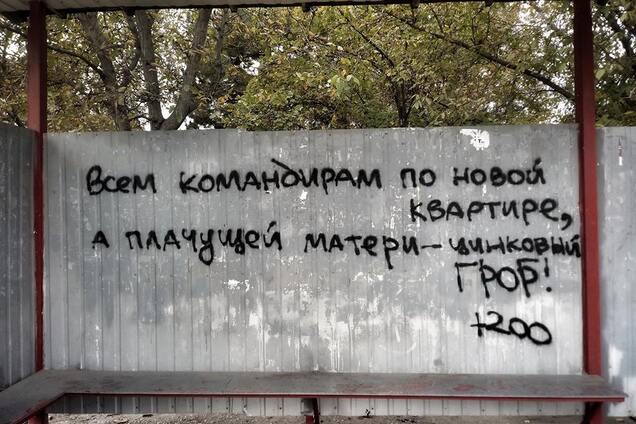 Всем командирам по новой
квартире,
а плачущей матери - цинковый
ГРОБ!
+200